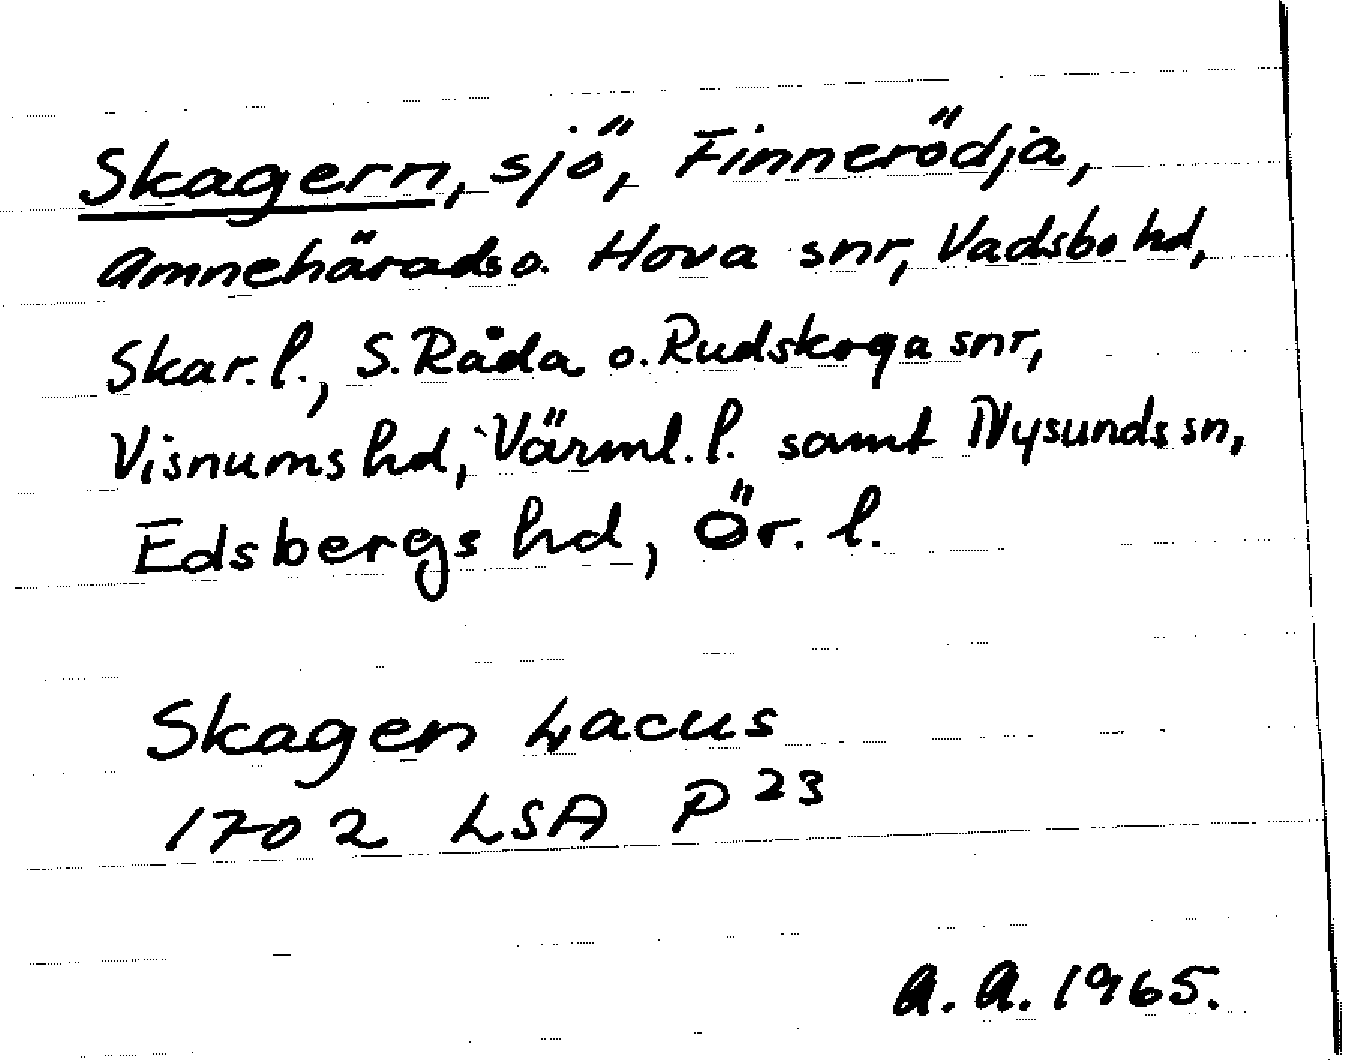 Skagern, sjö, Finnerödja,
Amnehärads o. Hova snr, Vadsbo hd,
Skar. l., S. Råda o. Rudskoga snr,
Visnums hd, Värml. l. samt Nysunds sn,
Edsbergs hd, Ör. l.
Skagen Lacus
1702 LSA P 23
A. A. 1965.